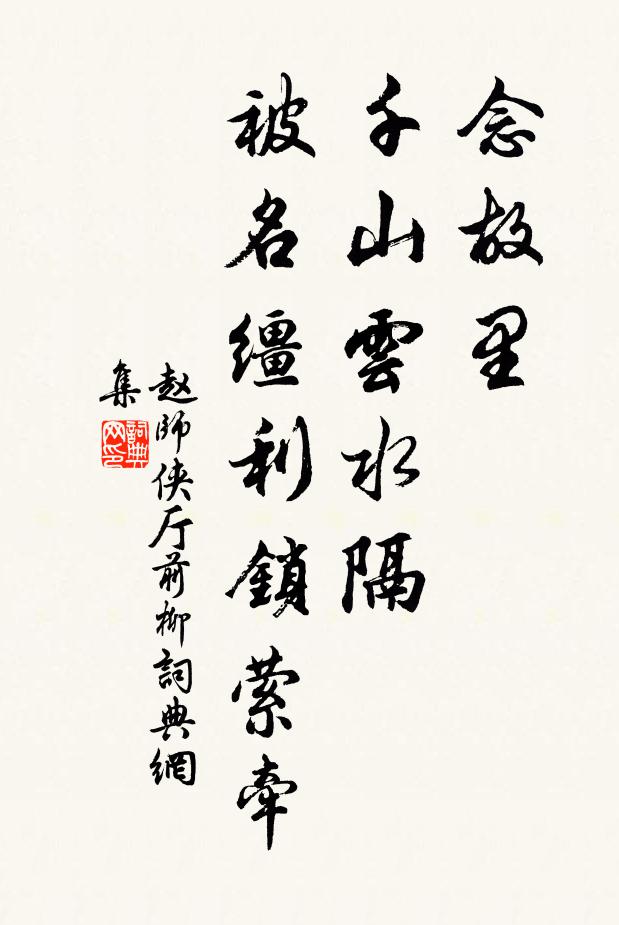 念故里
千山雲水隔
被名繮利鎖萦牽
赵師侠厅前柳詞典網
集
詞典
网印